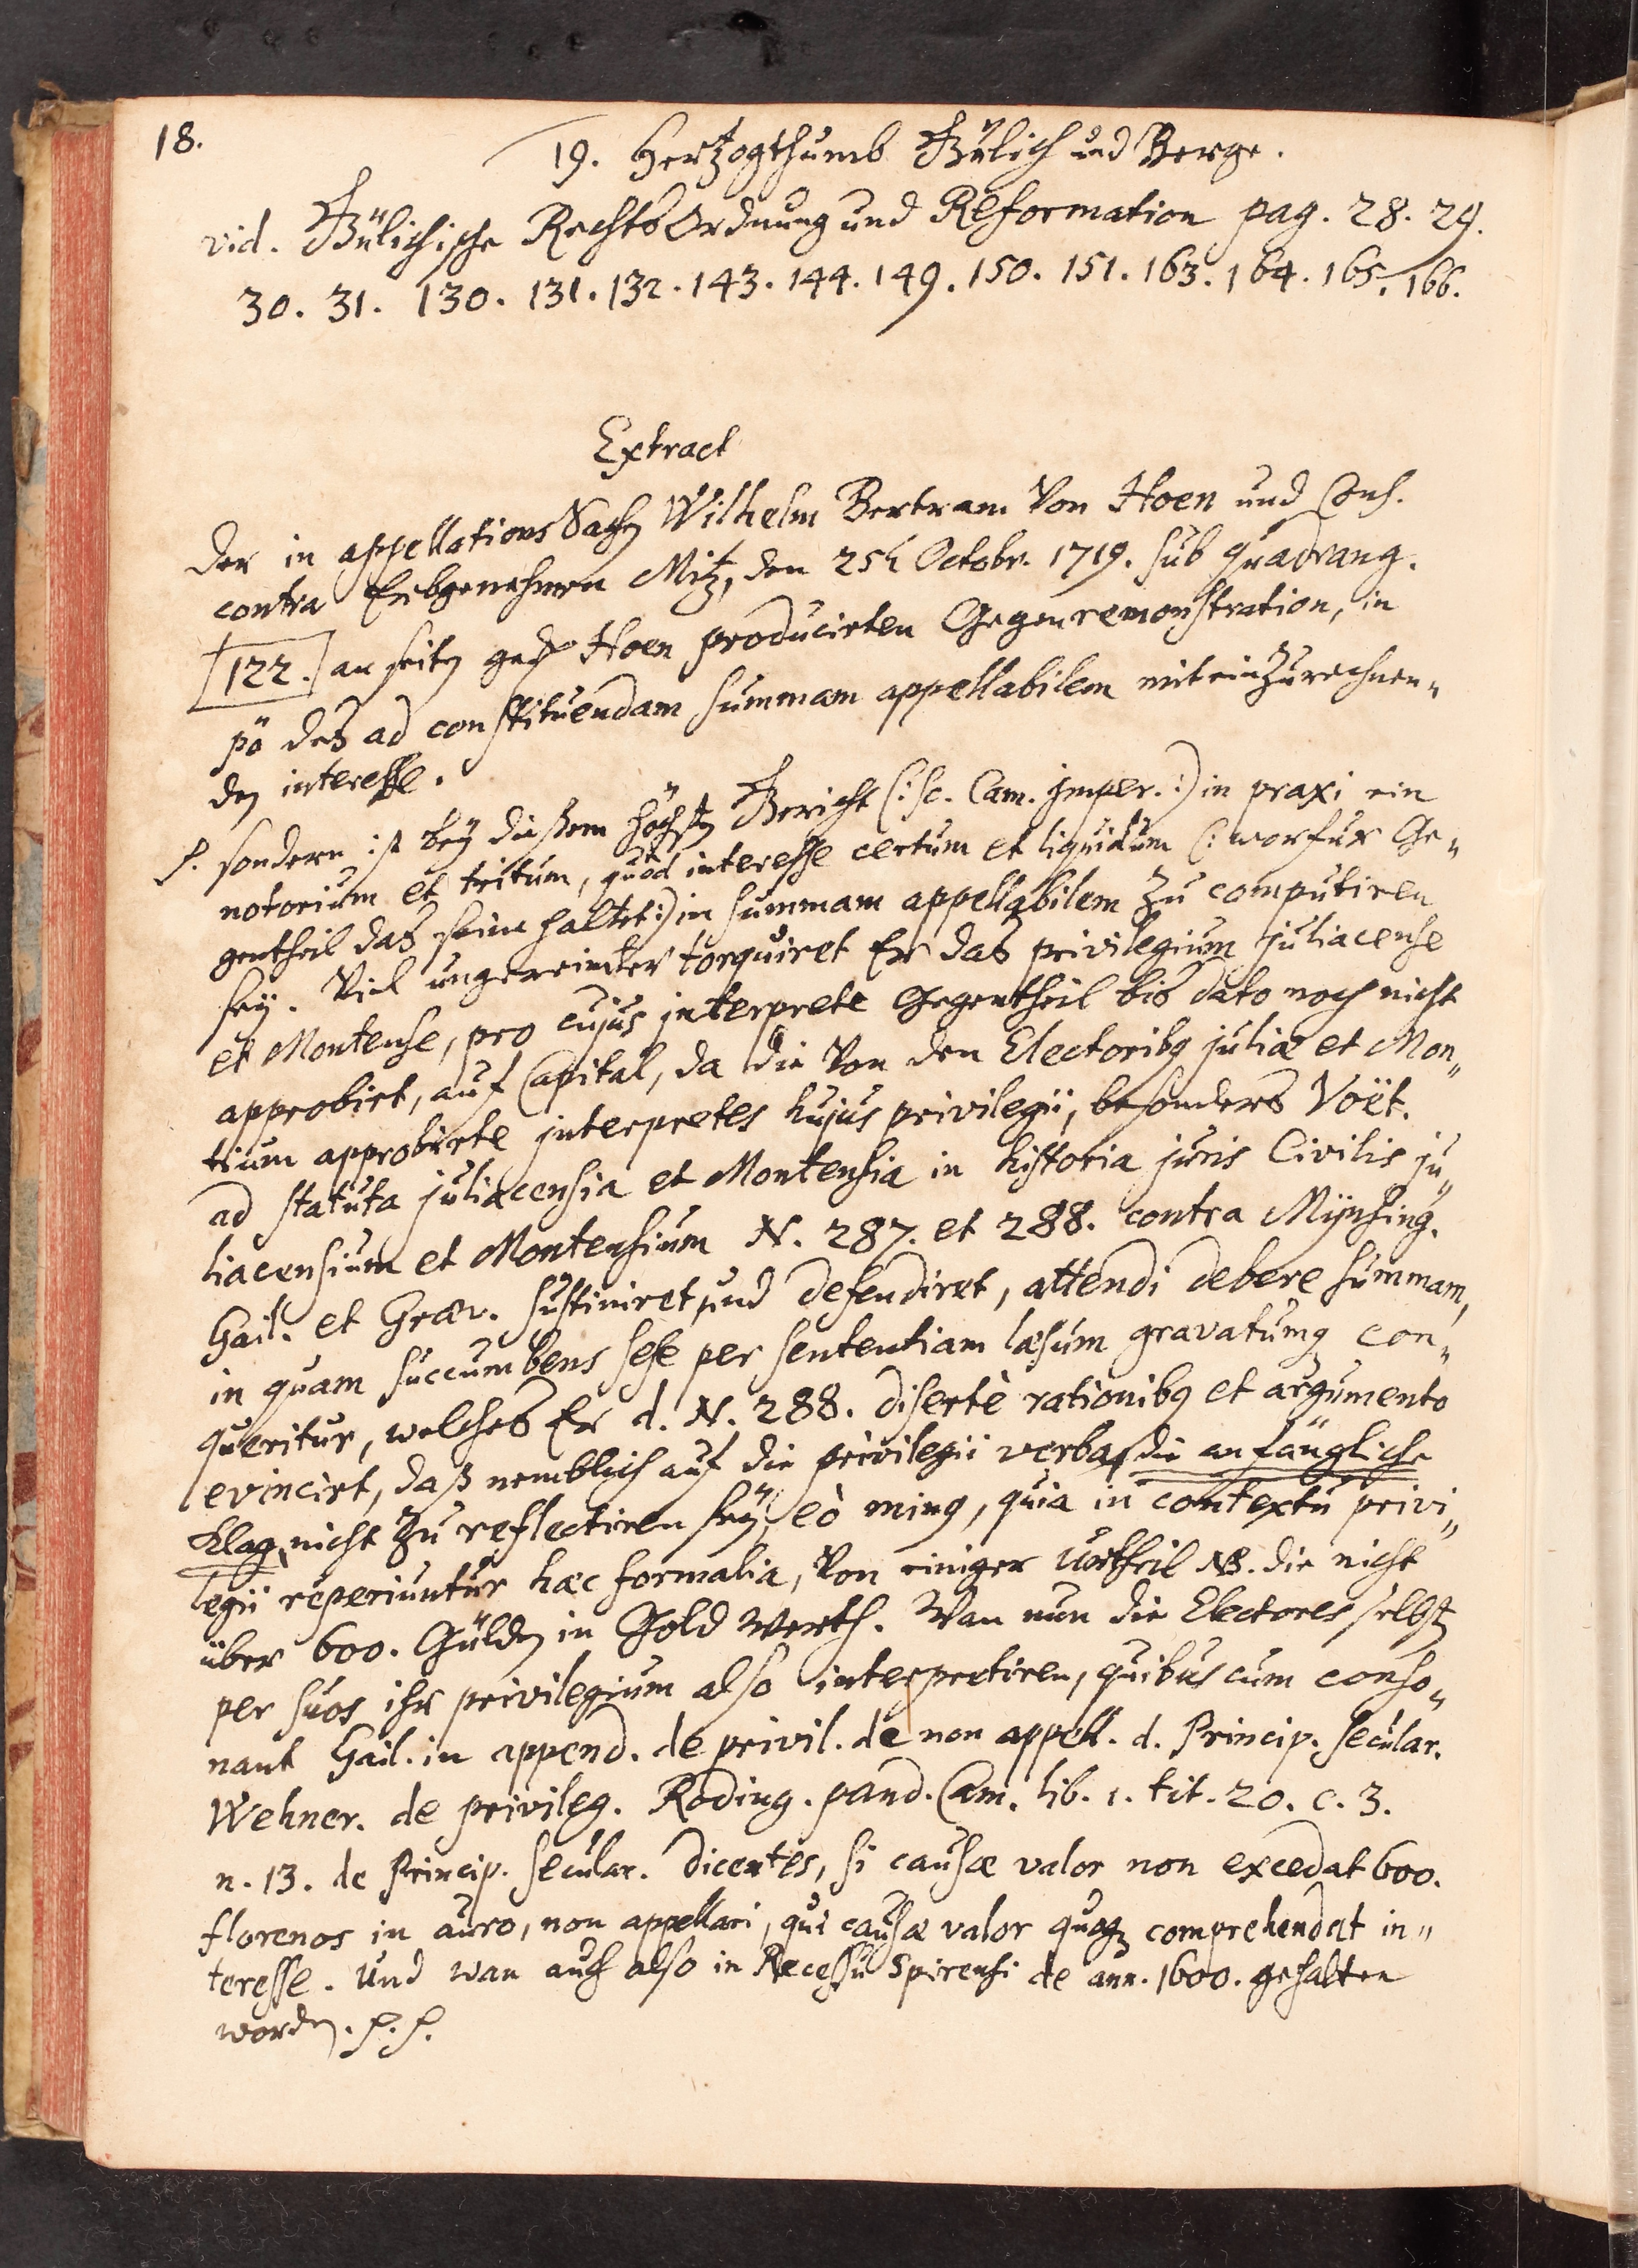 18.
19. Hertzogthumb Gülich und Berge.
vid. Gülichische Rechts Ordnung und Reformation pag. 28. 29.
30. 31. 130. 131. 132. 143. 144. 149. 150. 151. 163. 164. 165. 166.
Extract
der in appellations Sachen Wilhelm Bertram von Hoen und Cons.
contra Erbgenehmen Mitz, den 25t Octobr. 1719. sub quadrang.
122. an seiten Hoen producirten Gegenremonstration, in
pō deß ad constituendam summam appellabilem miteinzurechnen„
den interesse.
P. sondern ist bey dießem höchsten Gericht (: sc. Cam. Imper. :) in praxi ein
notorium et tritum, quod interesse certum et liquidum (: worfur Ge„
gentheil das seine haltet :) in summam appellabilem zu computiren
sey. Viel ungereimter torquiret Er das privilegium juliacense
et Montense, pro cujus interprete Gegentheil bis dato noch nicht
approbirt, auf Capital, da die von den Electoribq juliæ et Mon„
tium approbirte interpretes hujus privilegii, besonders Voët.
ad statuta juliacensia et Montensia in historia juris Civilis ju„
liacensium et Montensium N. 287. et 288. contra Mÿnsing.
Gail. et Græv. sustiniret und defendiret, attendi debere summam,
in quam succumbens sese per sententiam læsum gravatumq con„
queritur, welches Er d. N. 288. disertè rationibq et argumento
evincirt, daß nemblich auf die privilegii verba, die anfängliche
Klag, nicht zu reflectiren sey, eò minq, quia in contextu privi„
legii reperiuntur hæc formalia, von einiger Urtheil NB. die nicht
über 600. Gülden in Gold werth. Wan nun die Electores selbsten
per suos ihr privilegium also interpretiren, quibus cum conso„
nant Gail. in append. de privil. de non appell. d. Princip. secular.
Wehner. de privileg. Roding. pand. Cam. lib. 1. tit. 20. c. 3.
n. 13. de Princip. secular. dicentes, si causæ valor non excedat 600.
florenos in auro, non appellari, qui causæ valor quoq comprehendat in„
teresse. Und wan auch also in Recessu Spirensi de ann. 1600. gehalten
worden. P. P.